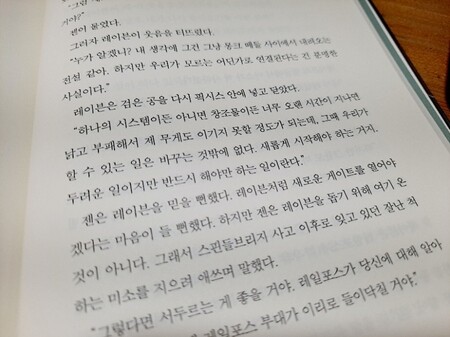 거야?"
젠이 물었다.
그러자 레이븐이 웃음을 터뜨렸다.
"누가 알겠니? 내 생각에 그건 그냥 뭉크 떼들 사이에서 내려오는
전설 같아. 하지만 우리가 모르는 어딘가로 연결된다는 건 분명한
사실이다."
레이븐은 검은 공을 다시 픽시스 안에 넣고 닫았다.
"하나의 시스템이든 아니면 창조물이든 너무 오랜 시간이 지나면
낡고 부패해서 제 무게도 이기지 못할 정도가 되는데, 그때 우리가
할 수 있는 일은 바꾸는 것밖에 없다. 새롭게 시작해야 하는 거지.
두려운 일이지만 반드시 해야만 하는 일이란다."
젠은 레이븐을 믿을 뻔했다. 레이븐처럼 새로운 게이트를 열어야
겠다는 마음이 들 뻔했다. 하지만 젠은 레이븐을 돕기 위해 여기 온
것이 아니다. 그래서 스핀들브리지 사고 이후로 잊고 있던 장난 척
하는 미소를 지으려 애쓰며 말했다.
"그렇다면 서두르는 게 좋을 거야. 레일포스가 당신에 대해 알아
레일포스 부대가 이리로 들이닥칠 거야."